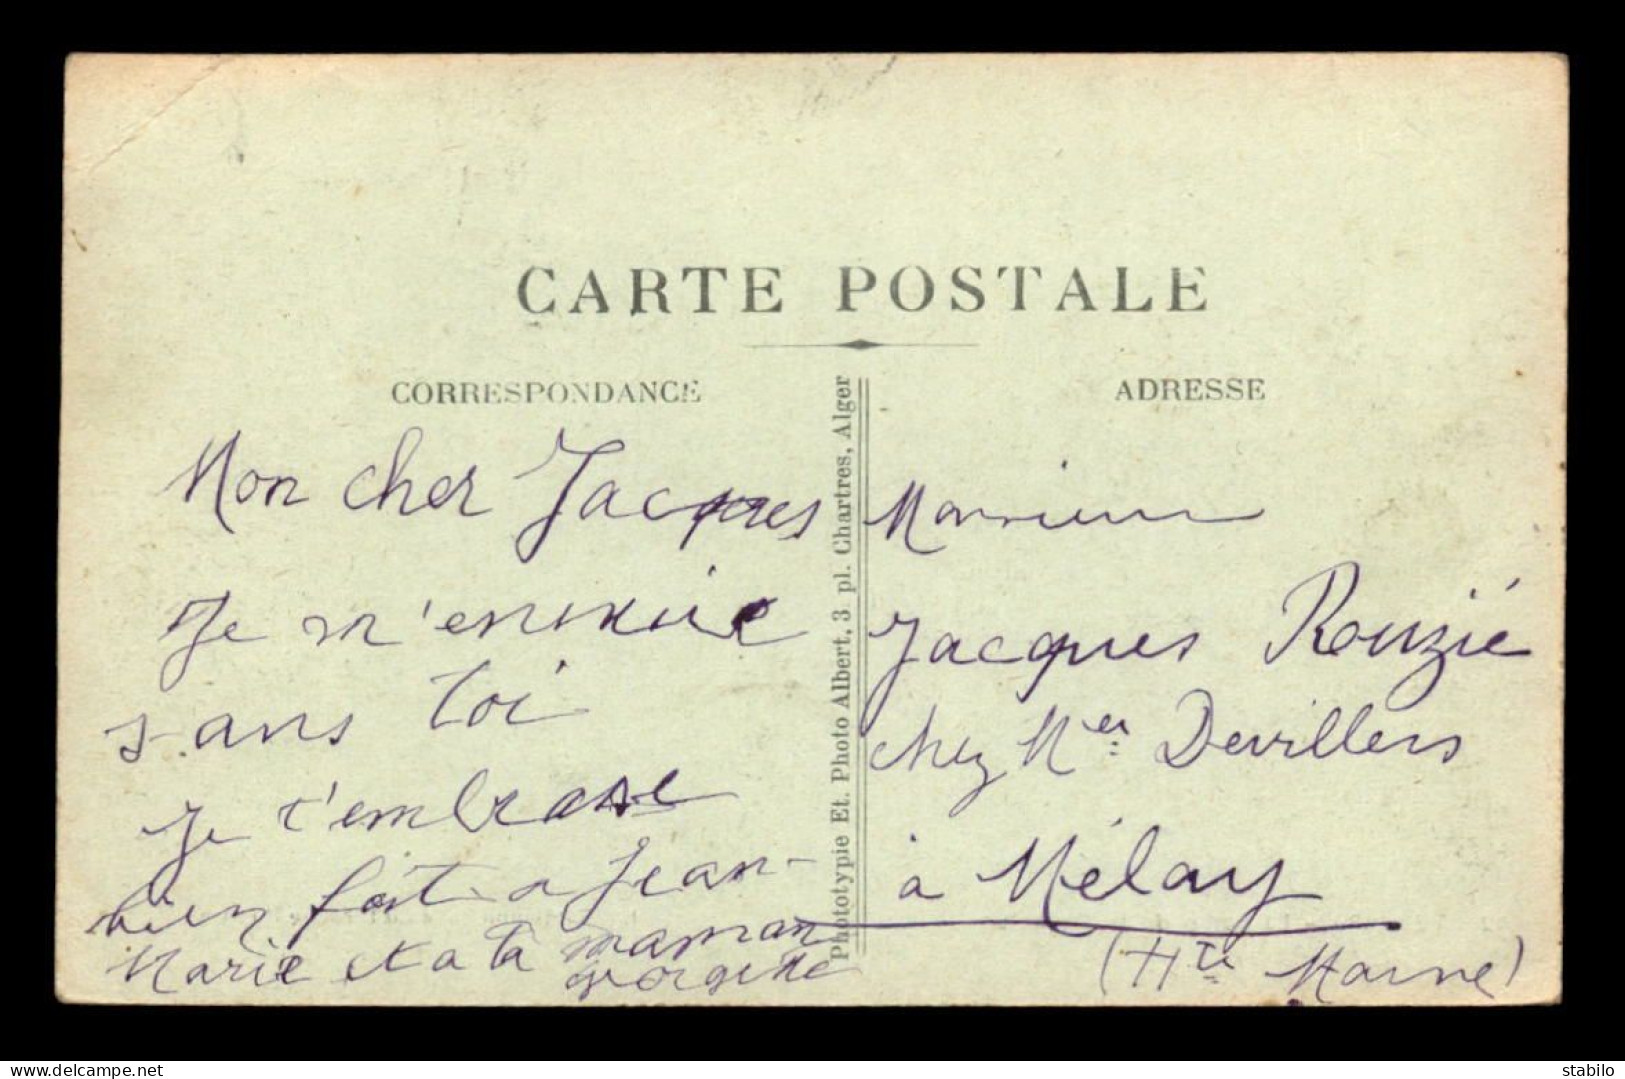 CARTE POSTALE
CORRESPONDANCE
Mon cher Jacques
Je m'ennuie
sans toi
Je t'embrasse
bien fort a Jean-
Marie et a ta maman
Phototypie Et. Photo Albert, 3 pl. Chartres, Alger
ADRESSE
Monsieur
Jacques Rouzié
chez Mer Devillers
à Mélay
(Hte Marne)
www.delcampe.net
stabilo